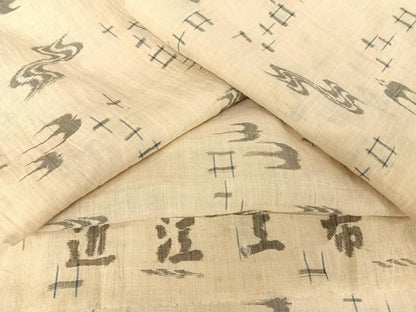 近江上布